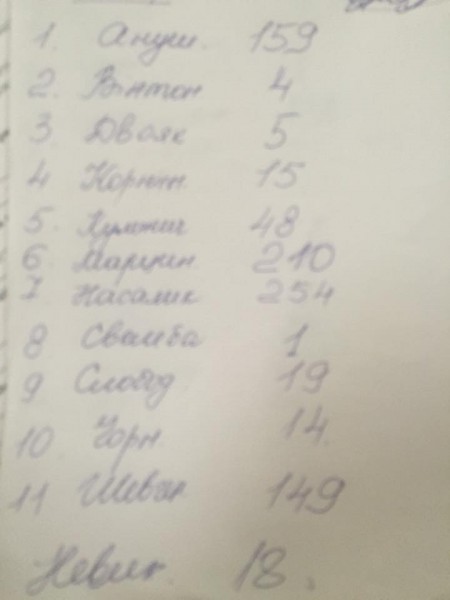 1. Ануш. 159
2. Вінтон 4
3 Двояк 5
4 Корнін 15
5. 48
6. Марцин 210
7 Насалик 254
8 Свалба 1
9 Слобод 19
10 Чорн. 14
11 Шевч. 149
Невин. 18.